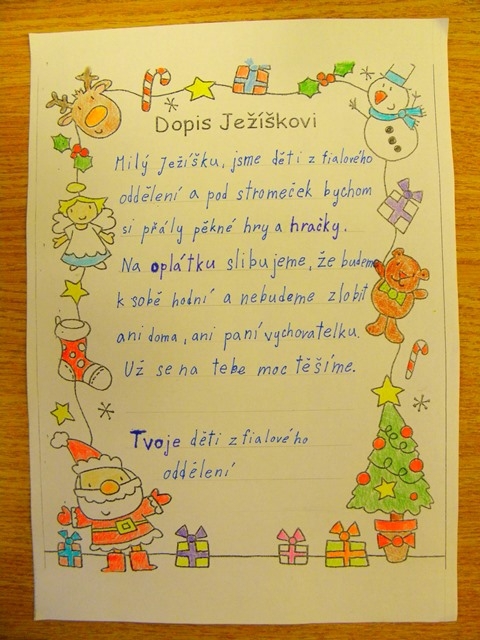 Dopis Ježíškovi
Milý Ježíšku, jsme děti z fialového
oddělení a pod stromeček bychom
si přály pěkné hry a hračky.
Na oplátku slibujeme, že budeme
k sobě hodní a nebudeme zlobit
ani doma, ani paní vychovatelku.
Už se na tebe moc těšíme.
Tvoje děti z fialového
oddělení